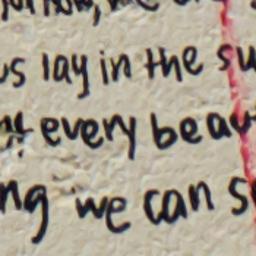 us lay in the su
every beau
ng we can s